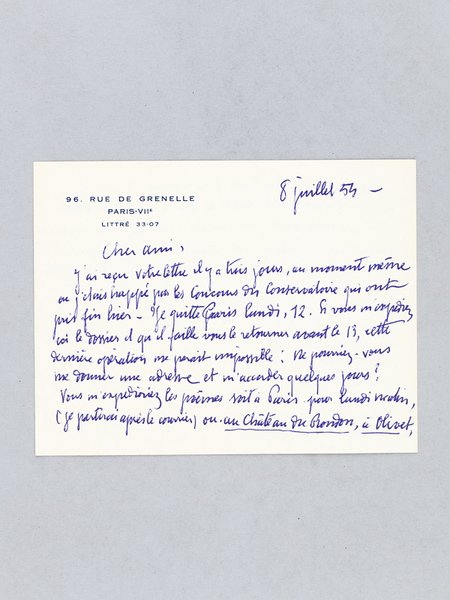 96, RUE DE GRENELLE
PARIS-VIIᵉ
LITTRÉ 33-07
8 juillet 54 –
Cher ami,
J'ai reçu votre lettre il y a trois jours, au moment même
où j'étais happé par les Concours du Conservatoire qui ont
pris fin hier – Je quitte Paris lundi, 12. Si vous m'expédiez
ici le dossier et qu'il faille vous le retourner avant le 13, cette
dernière opération me paraît impossible : Ne pourriez-vous
me donner une adresse et m'accorder quelques jours ?
Vous m'expédieriez les poèmes soit à Paris pour lundi matin,
(je partirai après le courrier) ou au Château du Rondon, à Olivet,